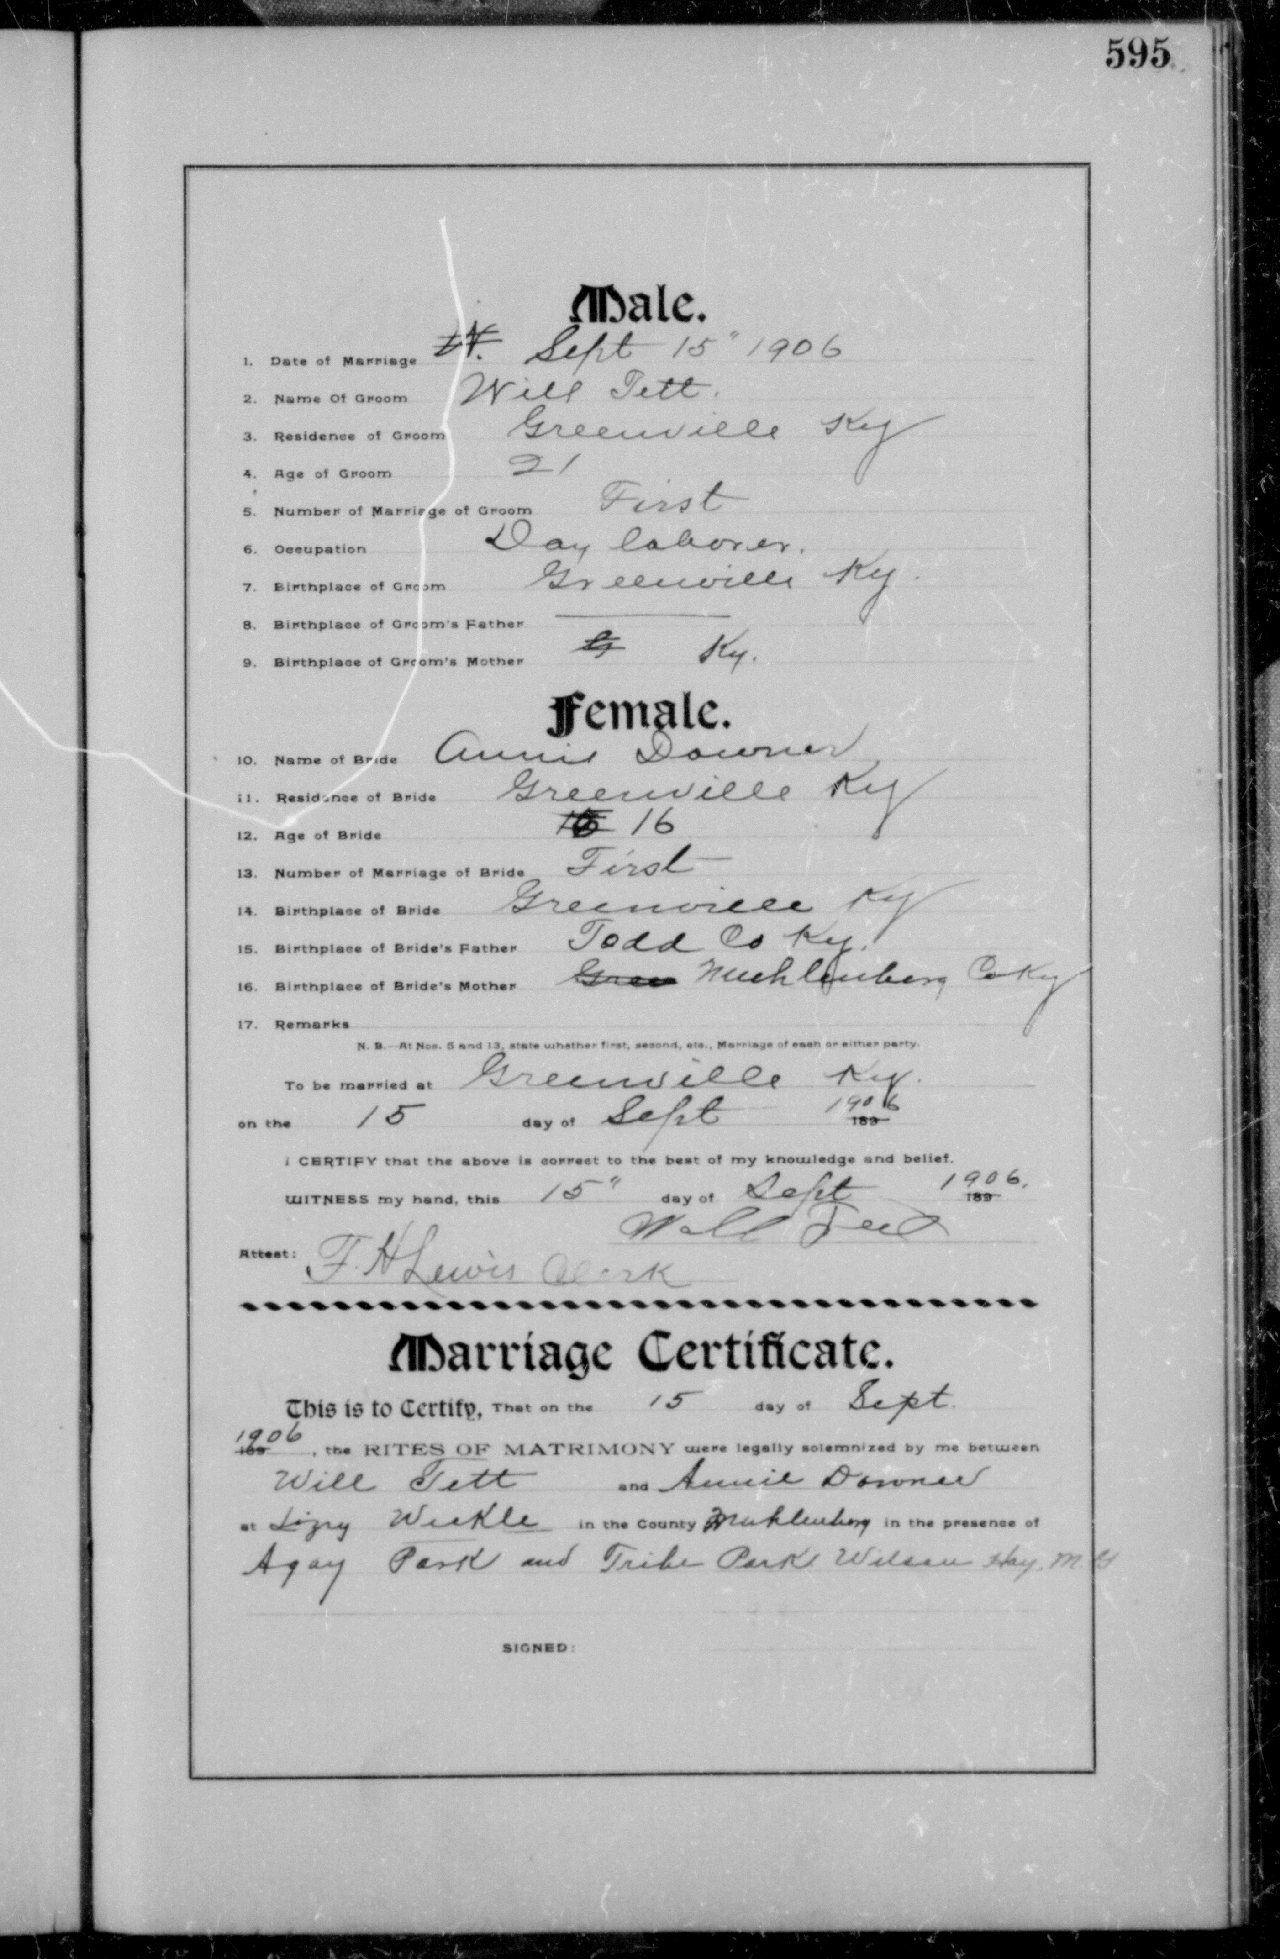 595
Male.
1. Date of Marriage W. Sept 15" 1906
2. Name Of Groom Will Tett.
3. Residence of Groom Greenville Ky
4. Age of Groom 21
5. Number of Marriage of Groom First
6. Occupation Day laborer.
7. Birthplace of Groom Greenville Ky.
8. Birthplace of Groom's Father
9. Birthplace of Groom's Mother G Ky.
Female.
10. Name of Bride Annie Downer
11. Residence of Bride Greenville Ky
12. Age of Bride 16
13. Number of Marriage of Bride First
14. Birthplace of Bride Greenville Ky
15. Birthplace of Bride's Father Todd Co Ky.
16. Birthplace of Bride's Mother Gree Muhlenberg Co Ky
17. Remarks
N. B.—At Nos. 5 and 13, state whether first, second, etc., Marriage of each or either party.
To be married at Greenville Ky.
on the 15 day of Sept 1906 189
I CERTIFY that the above is correct to the best of my knowledge and belief.
WITNESS my hand, this 15" day of Sept 1906. 189
Will
Attest: F. H Lewis Clerk
Marriage Certificate.
This is to Certify, That on the 15 day of Sept.
1906 189, the RITES OF MATRIMONY were legally solemnized by me between
Will Tett and Annie Downer
at Wickle in the County Muhlenberg in the presence of
Park and Tribe Park Wilson Hay. M. G
SIGNED: